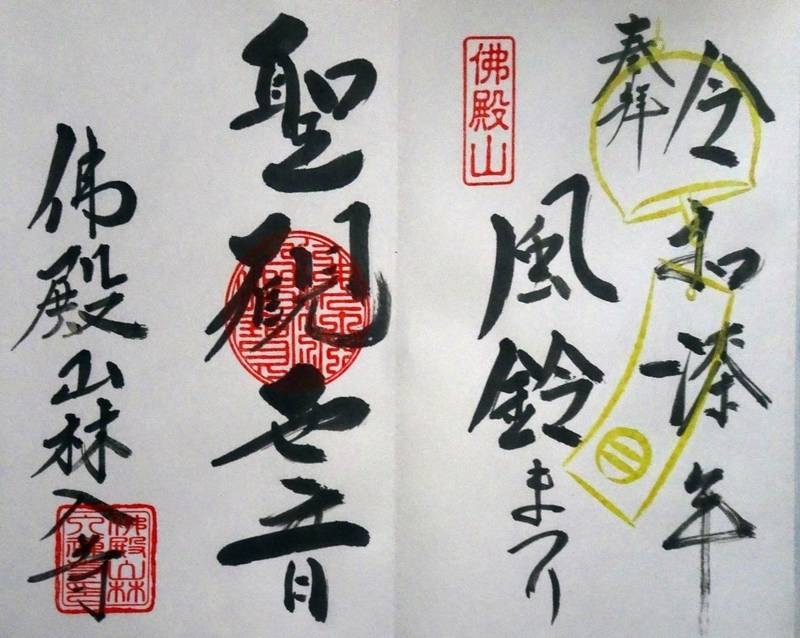 奉拝
令和漆年
佛殿山
風鈴まつり
聖観世音
佛殿山林入寺